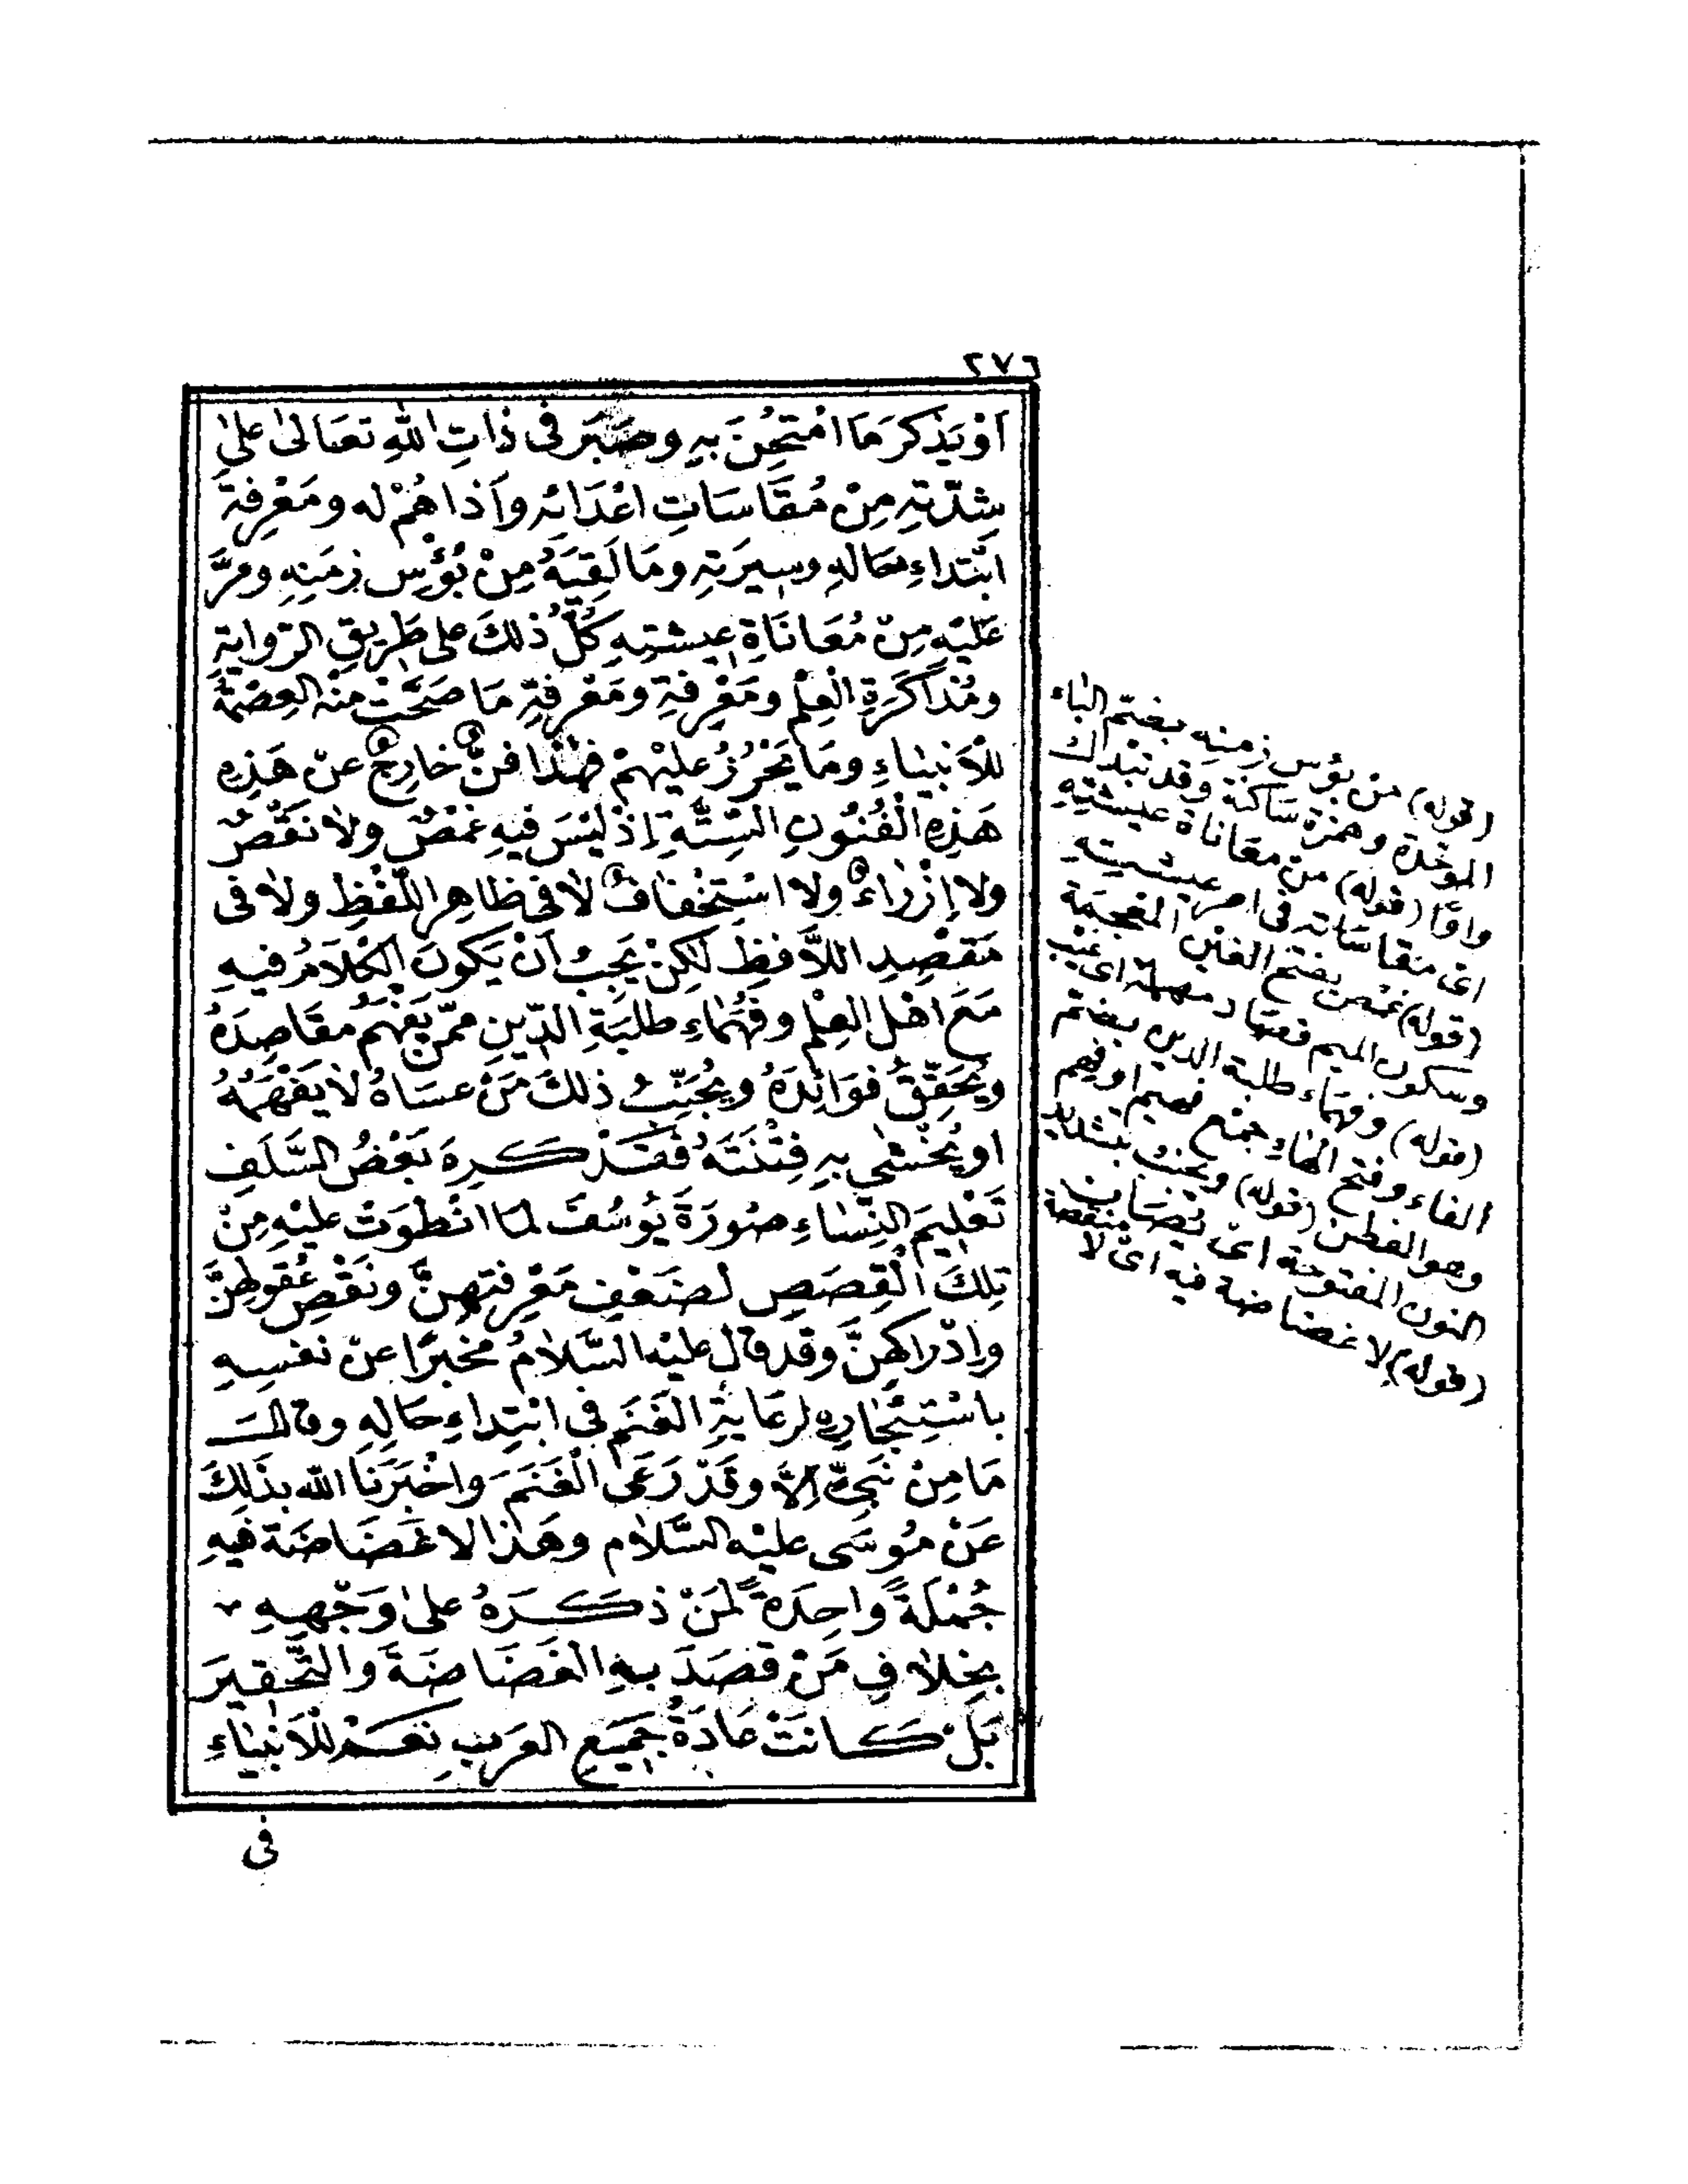 ٢٧٦
اَوْ يَذْكُرَ مَا امْتُحِنَ بِهِ وصَبَرَ فى ذَاتِ اللّٰهِ تعَالىٰ علىٰ
شِدَّتِهِ مِنْ مُقَاسَاتِ اعْدَائِهِ واَذَاهُمْ له ومَعْرِفةِ
ابْتداءِ حَالهِ وسِيرَتِهِ ومَا لَقِيَهُ مِنْ بُؤْسِ زمَنِهِ ومَرَّ
عَلَيْهِ مِنْ مُعَانَاةِ عِيشتِهِ كُلُّ ذلكَ على طَرِيقِ الرّوايةِ
ومُذاكَرَةِ الْعِلْمِ ومَعْرِفةِ ومَعْرِفةِ مَا صَحَّتْ مِنْه العِصْمَةُ
للْاَنبيَاءِ ومَا يَجُوزُ عليْهِمْ فهٰذا فنٌّ خارِجٌ عنْ هَذِهِ
هَذِهِ الْفُنُونِ السِّتَّةِ اِذْ ليْسَ فيهِ غمْصٌ ولا نَقْصٌ
ولا اِزْرَاءٌ ولا اسْتِخْفافٌ لا فى ظاهِرِ اللّفْظِ ولا فى
مَقْصِدِ اللاَّفِظِ لكِنْ يَجِبُ اَنْ يَكونَ الْكلاَمُ فيهِ
مَعَ اهْلِ العِلْمِ وفُهَمَاءِ طلبَةِ الدّينِ ممّنْ يَفْهَمُ مقَاصِدَهُ
ويُحَقّقُ فوَائِدَهُ ويُجَنَّبُ ذلكَ مَنْ عسَاهُ لا يَفْهَمُهُ
او يُخْشٰى بهِ فِتْنَتَهُ فقَدْ كَرِهَ بَعْضُ السَّلَفِ
تَعْلِيمَ النِّساءِ صُورَةَ يُوسُفَ لمَا انْطَوَتْ عليْهِ مِنْ
تِلكَ الْقِصَصِ لضَعْفِ مَعْرِفتِهِنَّ ونَقْصِ عُقولِهِنَّ
وإدْراكِهِنَّ وقد قال عليْه السَّلامُ مخبرًا عنْ نفسِهِ
باسْتِئْجَارِهِ لرِعَايَةِ الغَنَمِ فى ابْتِداءِ حَالِهِ وقالَ
مَا مِنْ نَبِىٍّ اِلاَّ وقَدْ رَعَى الْغَنَمَ واخْبَرَنَا اللّه بذَلِكَ
عَنْ مُوسَى عليْه السَّلام وهَذا لا غَضَاضَةَ فيهِ
جُمْلَةً واحِدَةً لمَنْ ذكَرَهُ علىٰ وَجْهِهِ
بخِلافِ مَنْ قصَدَ بهِ الغَضَاضَةَ والتّحْقِيرَ
بَلْ كانَتْ عَادَةُ جَمِيَعِ العَرَبِ نعَمْ للْاَنبيَاءِ
فى
(قوله) من بؤس زمنه بضمّ الباء
الموحّدة وهمزة سَاكنة وقد تبدل
واوًا (قوله) من معَاناة عيشتِهِ
اى مقاسَاته فى امر عيشته
(قوله) غمْص بفتح الغين المعجمَة
وسكون الميم فصَاد مهملة اى عَيْب
(قوله) وفهمَاء طلبة الدين بضمّ
الفاء وفتح الهاء جمْع فهيم او فهم
وهو الفطن (قوله) ويجنب بتشديد
النون المفتوحة اى يُصَان
(قوله) لا غضاضة فيه اى لا منقصة